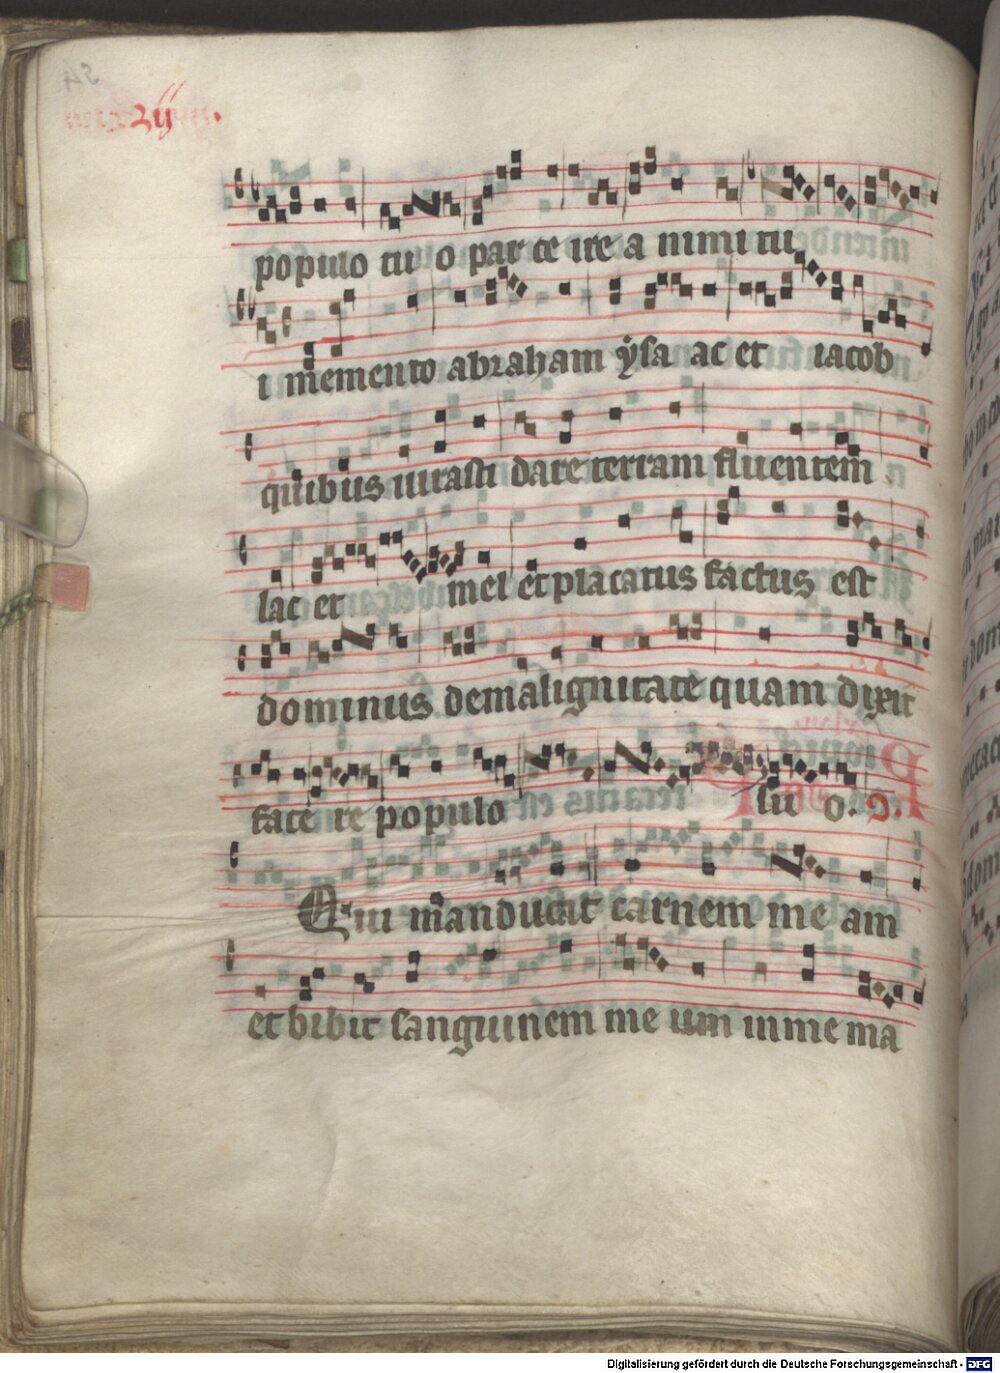 populo tu o par ce ire a nimi tu
i memento abraham ẏsa ac et iacob
quibus iurasti dare terram fluentem
lac et mel et placatus factus est
dominus de malignitate quam dixit
face re populo su o. Ɔ.
Qui manducat carnem me am
et bibit sanguinem me um in me ma
Digitalisierung gefördert durch die Deutsche Forschungsgemeinschaft - DFG